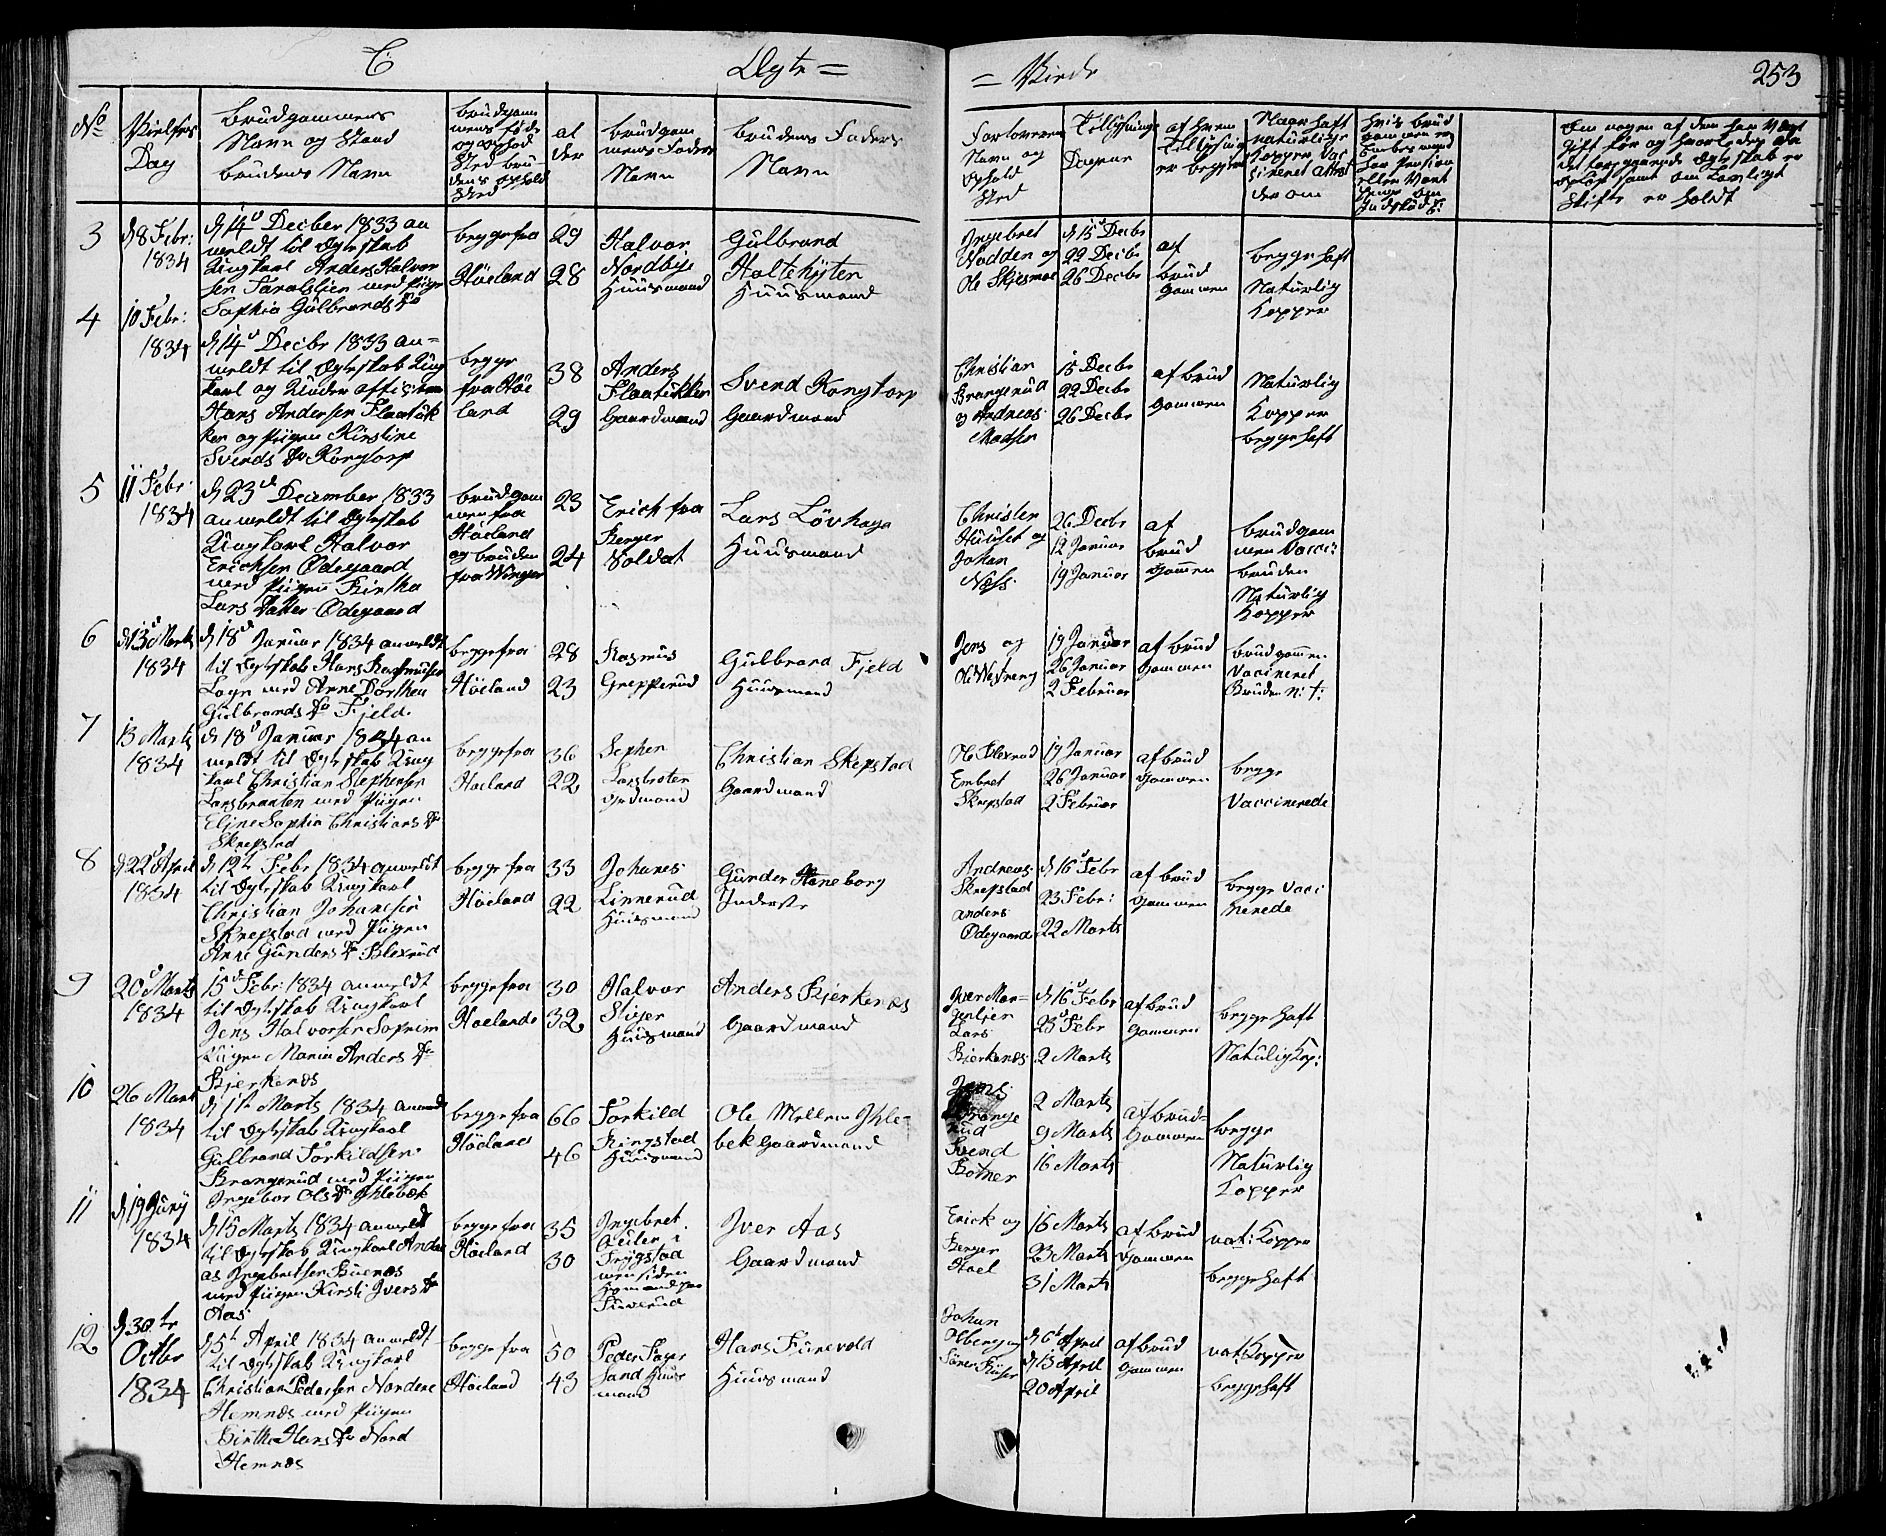 C Ægte = = Viede 253
No
Vielses Dag
Brudgommens Navn og Stand Brudens Navn
Brudgommens føde og ophold Sted Brudens ophold Sted
Alder
Brudgommens Faders Navn
Brudens Faders Navn
Forloverens Navn og Ophold Sted
Tillysnings Dagene
af hvem Tillysning er begjert
Naar haft naturlige Kopper, Vaccineret Attest derom
3
d 8 Febr: 1834
d 14d Decber 1833 an
meldt til Ægteskab
Ungkarl Anders Halvor
sen med Piige
Sophia Gulbrands Dr
begge fra
Höeland
29
28
Halvor
Nordbye
Huusmand
Gulbrand
Holtehyten
Huusmand
Ingebret
Nadden og
Ole
d 15 Decbr
22 Decbr
26 Decbr
af
brud
gommen
begge haft
Naturlig
Kopper
4
10 Febr:
1834
d 14d Decbr 1833 an=
meldt til Ægteskab Ung
karl og Under officier
Hans Andersen Flaatuk
ker og Piigen Kirstine
Svends Dr Kongtorp
begge
fra Höe
land
38
29
Anders
Flaatukker
Gaardmand
Svend Kongtorp
Gaardmand
Christian
Krangerud
og Andreas
Madsen
15 Decbr
22 Decbr
26 Decbr
af brud
gommen
Naturlig
Kopper
begge haft
5
11 Febr:
1834
d 23d December 1833
anmeldt til Ægteskab
Ungkarl Halvor
Erichsen Ödegaard
med Piigen Birtha
Lars Datter Ödegaard
brudgom
men fra
Höeland
og bruden
fra Winger
23
24
Erich fra
Berger
Soldat
Lars Lövhaga
Huusmand
Christen
Huuset og
Johan
Næss
26 Decbr
12 Januar
19 Januar
af
brud
gommen
brudgom
men Vacci:
bruden
Naturlig
Kopper
6
d 13d Marts
1834
d 18d Januar 1834 anmeldt
til Ægteskab Hans Rasmusen
med Anne Dorthea
Gulbrands Dr Fjeld
begge fra
Höeland
28
23
Rasmus
Grepperud
Gulbrand Fjeld
Huusmand
Jens og
Ole Westreng
19 Januar
26 Januar
2 Februar
af brud
gommen
brudgommen
Vaccineret
Bruden N: t:
7
13 Marts
1834
d 18d Januar 1834 an
meldt til Ægteskab Ung
karl Christian Stephensen
Larsbraaten med Piigen
Eline Sophia Christians Dr
Skrepstad
begge fra
Höeland
36
22
Stephen
Larsbroten
Grdmand
Christian Skrepstad
Gaardmand
Ole Blexrud
Embret
Skrepstad
19 Januar
26 Januar
2 Februar
af brud
gommen
begge
Vaccinerede
8
d 22d April
1834
d 12t Febr 1834 anmeldt
til Ægteskab Ungkarl
Christian Johansen
Skrepstad med Piigen
Anne Gunders Dr Blexrud
begge fra
Höeland
33
22
Johanes
Linnerud
Huusmand
Gunder Haneborg
Inderste
Andreas
Skrepstad
Anders
Ödegaard
d 16d Febr
23 Febr:
22 Marts
af brud
gommen
begge Vacci
nerede
9
20d Marts
1834
15d Febr: 1834 anmeldt
til Ægteskab Ungkarl
Jens Halvorsen
Piigen Maria Anders Dr
Bjerkenæs
begge fra
Höeland
30
32
Halvor
Huusmand
Anders Bjerkenæs
Gaardmand
Iver
Lars
Bjerkenæs
d 16d Febr
23d Febr
2 Marts
af brud
gommen
begge haft
Natulig Kop:
10
26 Mart
1834
d 1te Marts 1834 anmeldt
til Ægteskab Ungkarl
Gulbrand Torkildsen
Krangerud med Piigen
Ingebor Ols Dr Ihlebæk
begge fra
Höeland
66
46
Torkild
Ringstad
Huusmand
Ole Mellem Ihle
bek Gaardmand
Svend
Botner
2 Marts
9 Marts
16 Marts
af brud=
gommen
begge
Naturlig
Kopper
11
d 19 Juny
1834
d 15 Marts 1834 anmeldt
til Ægteskab Ungkarl Andre
as Ingebretsen Buenæs
med Piigen Kirsti Ivers Dr
Aas
begge fra
Höeland
35
30
Ingebret
Auler i
Trygstad
men siden
Iver Aas
Gaardmand
Erick og
Berger
16 Marts
23 Marts
31 Marts
af brud
gommen
nat: Kopper
begge haft
12
d 30te
Octbr
1834
d 5t April 1834 anmeldt
til Ægteskab Ungkarl
Christian Pedersen Nordre
Hemnæs med Piigen
Birthe Hans Dr Nord
Hemnæs
begge fra
Höeland
50
43
Peder
Sand Huus
mand
Hans Furevold
Huusmand
Johan
Olberg og
Sören
d 6t April
d 13 April
20 April
af brud
gommen
nat: Kopper
begge haft